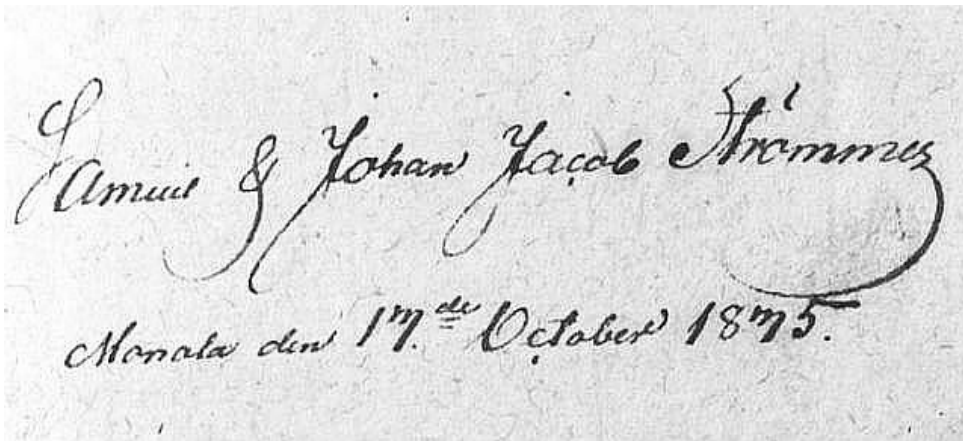 Samuel & Johan Jacob Strömmer
Monäla den 17.de October 1875.